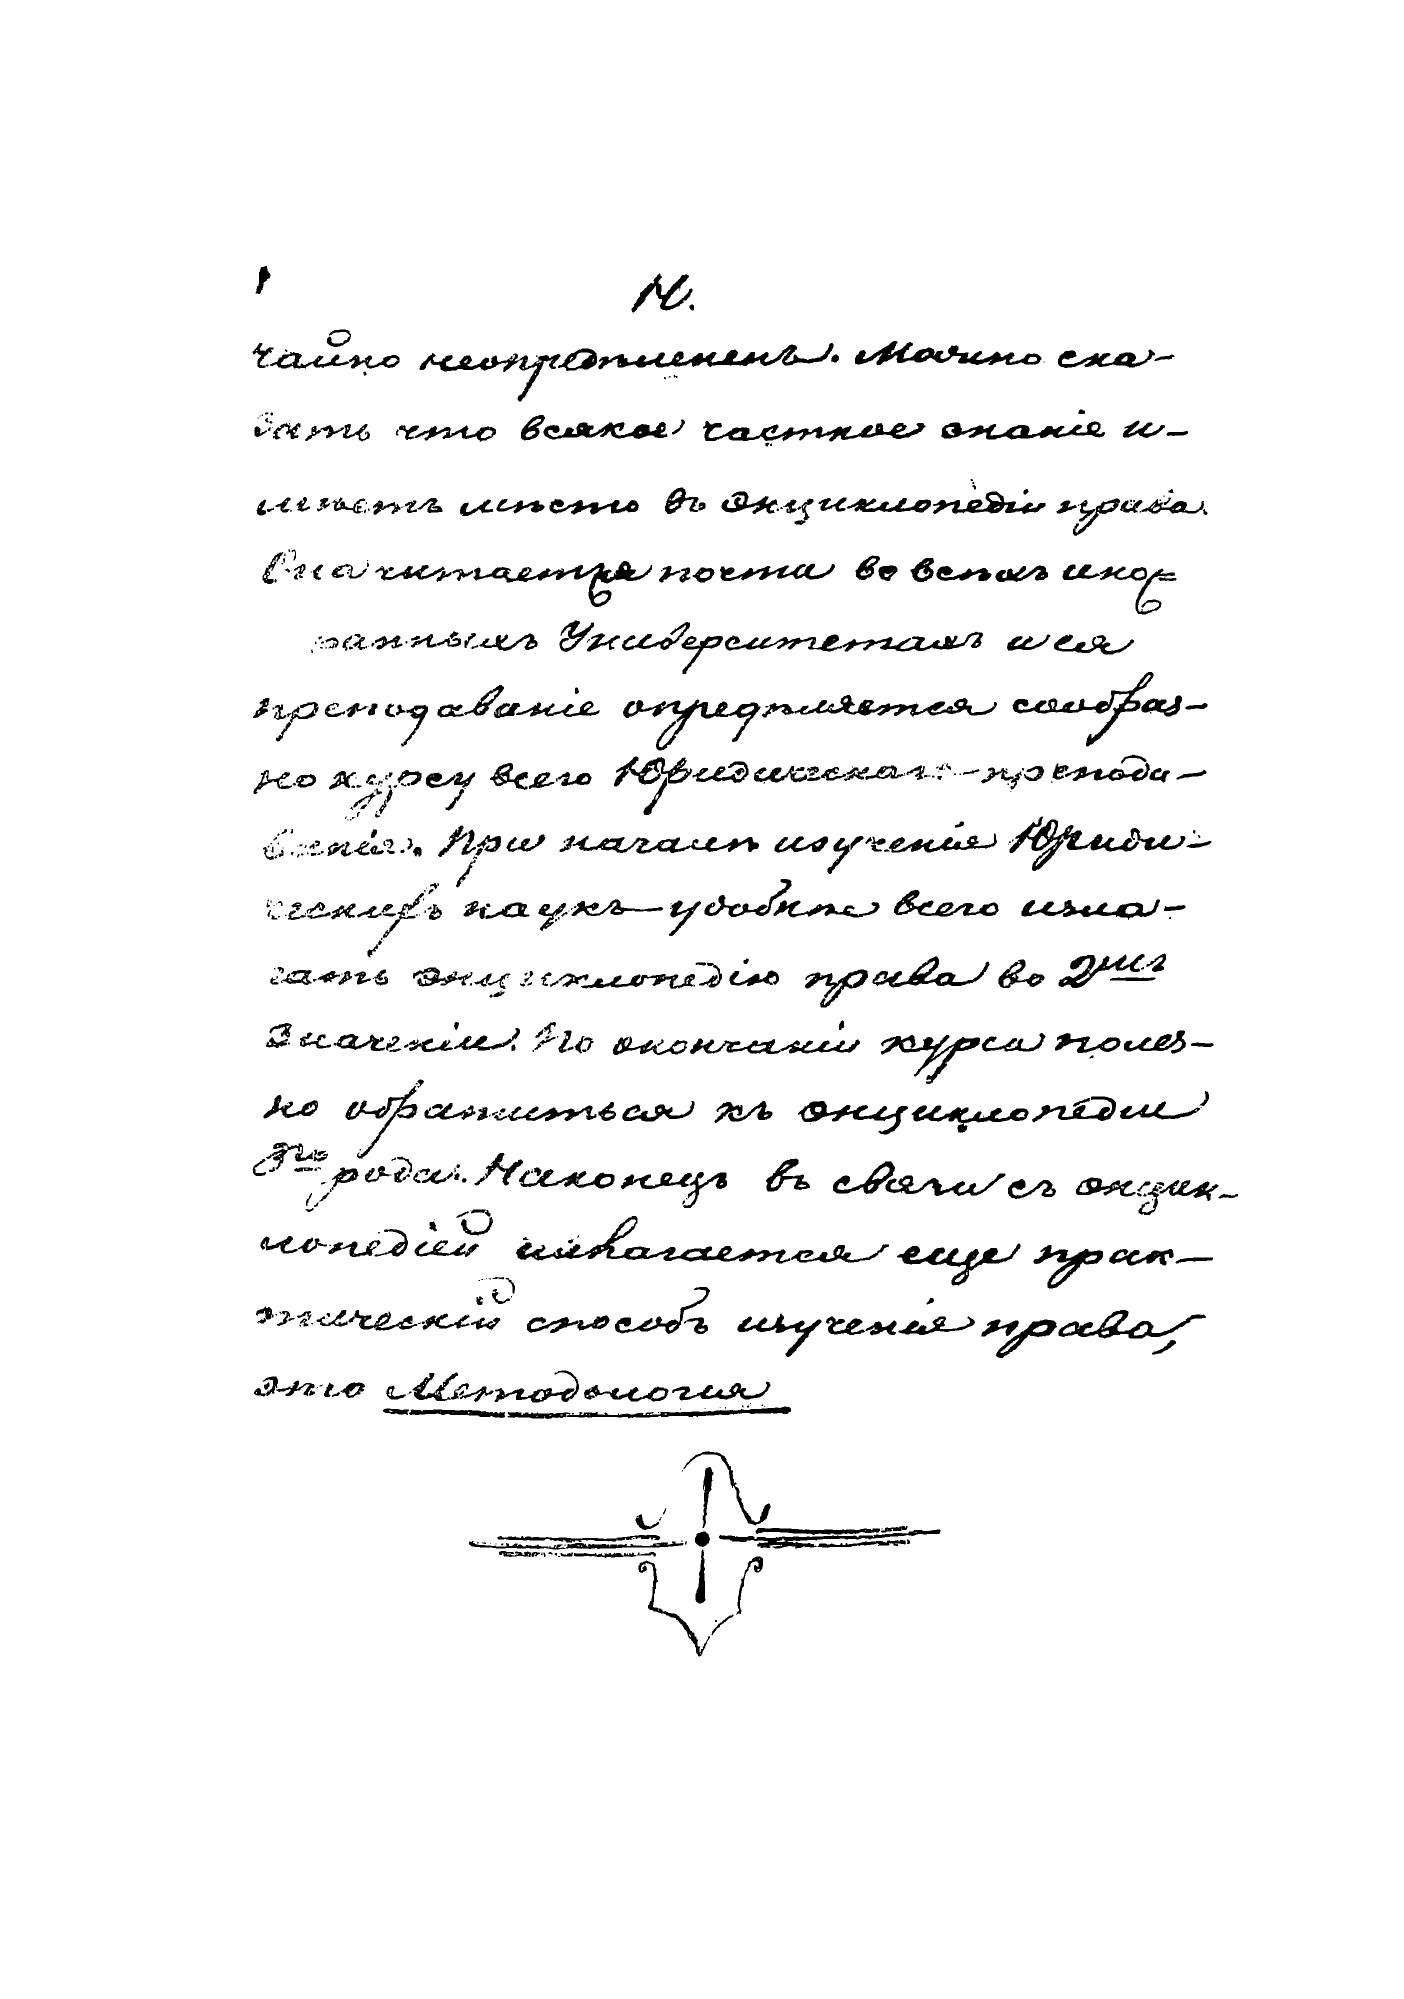 14.
чайно неопредѣлененъ. Можно ска-
зать что всякое частное знаніе и-
мѣетъ мѣсто въ энциклопедіи права.
Она читается почти во всѣхъ ино-
ранныхъ Университетахъ и ея
преподаваніе опредѣляется сообраз-
но курсу всего Юридическаго препода-
ванія. При началѣ изученія Юриди-
ческихъ наукъ удобнѣе всего изла-
гать энциклопедію права во 2мъ
значеніи. По окончаніи курса полез-
но обратиться къ энциклопедіи
3го рода. Наконецъ въ связи съ энцик-
лопедіей излагается еще прак-
тическій способъ изученія права,
это Методологія